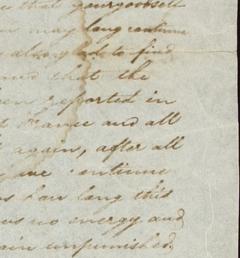 that yourgoodself
may long continue
to find
that the
reported in
France and all
again, after all
we continue
how long this
us no energy and
unpunished.